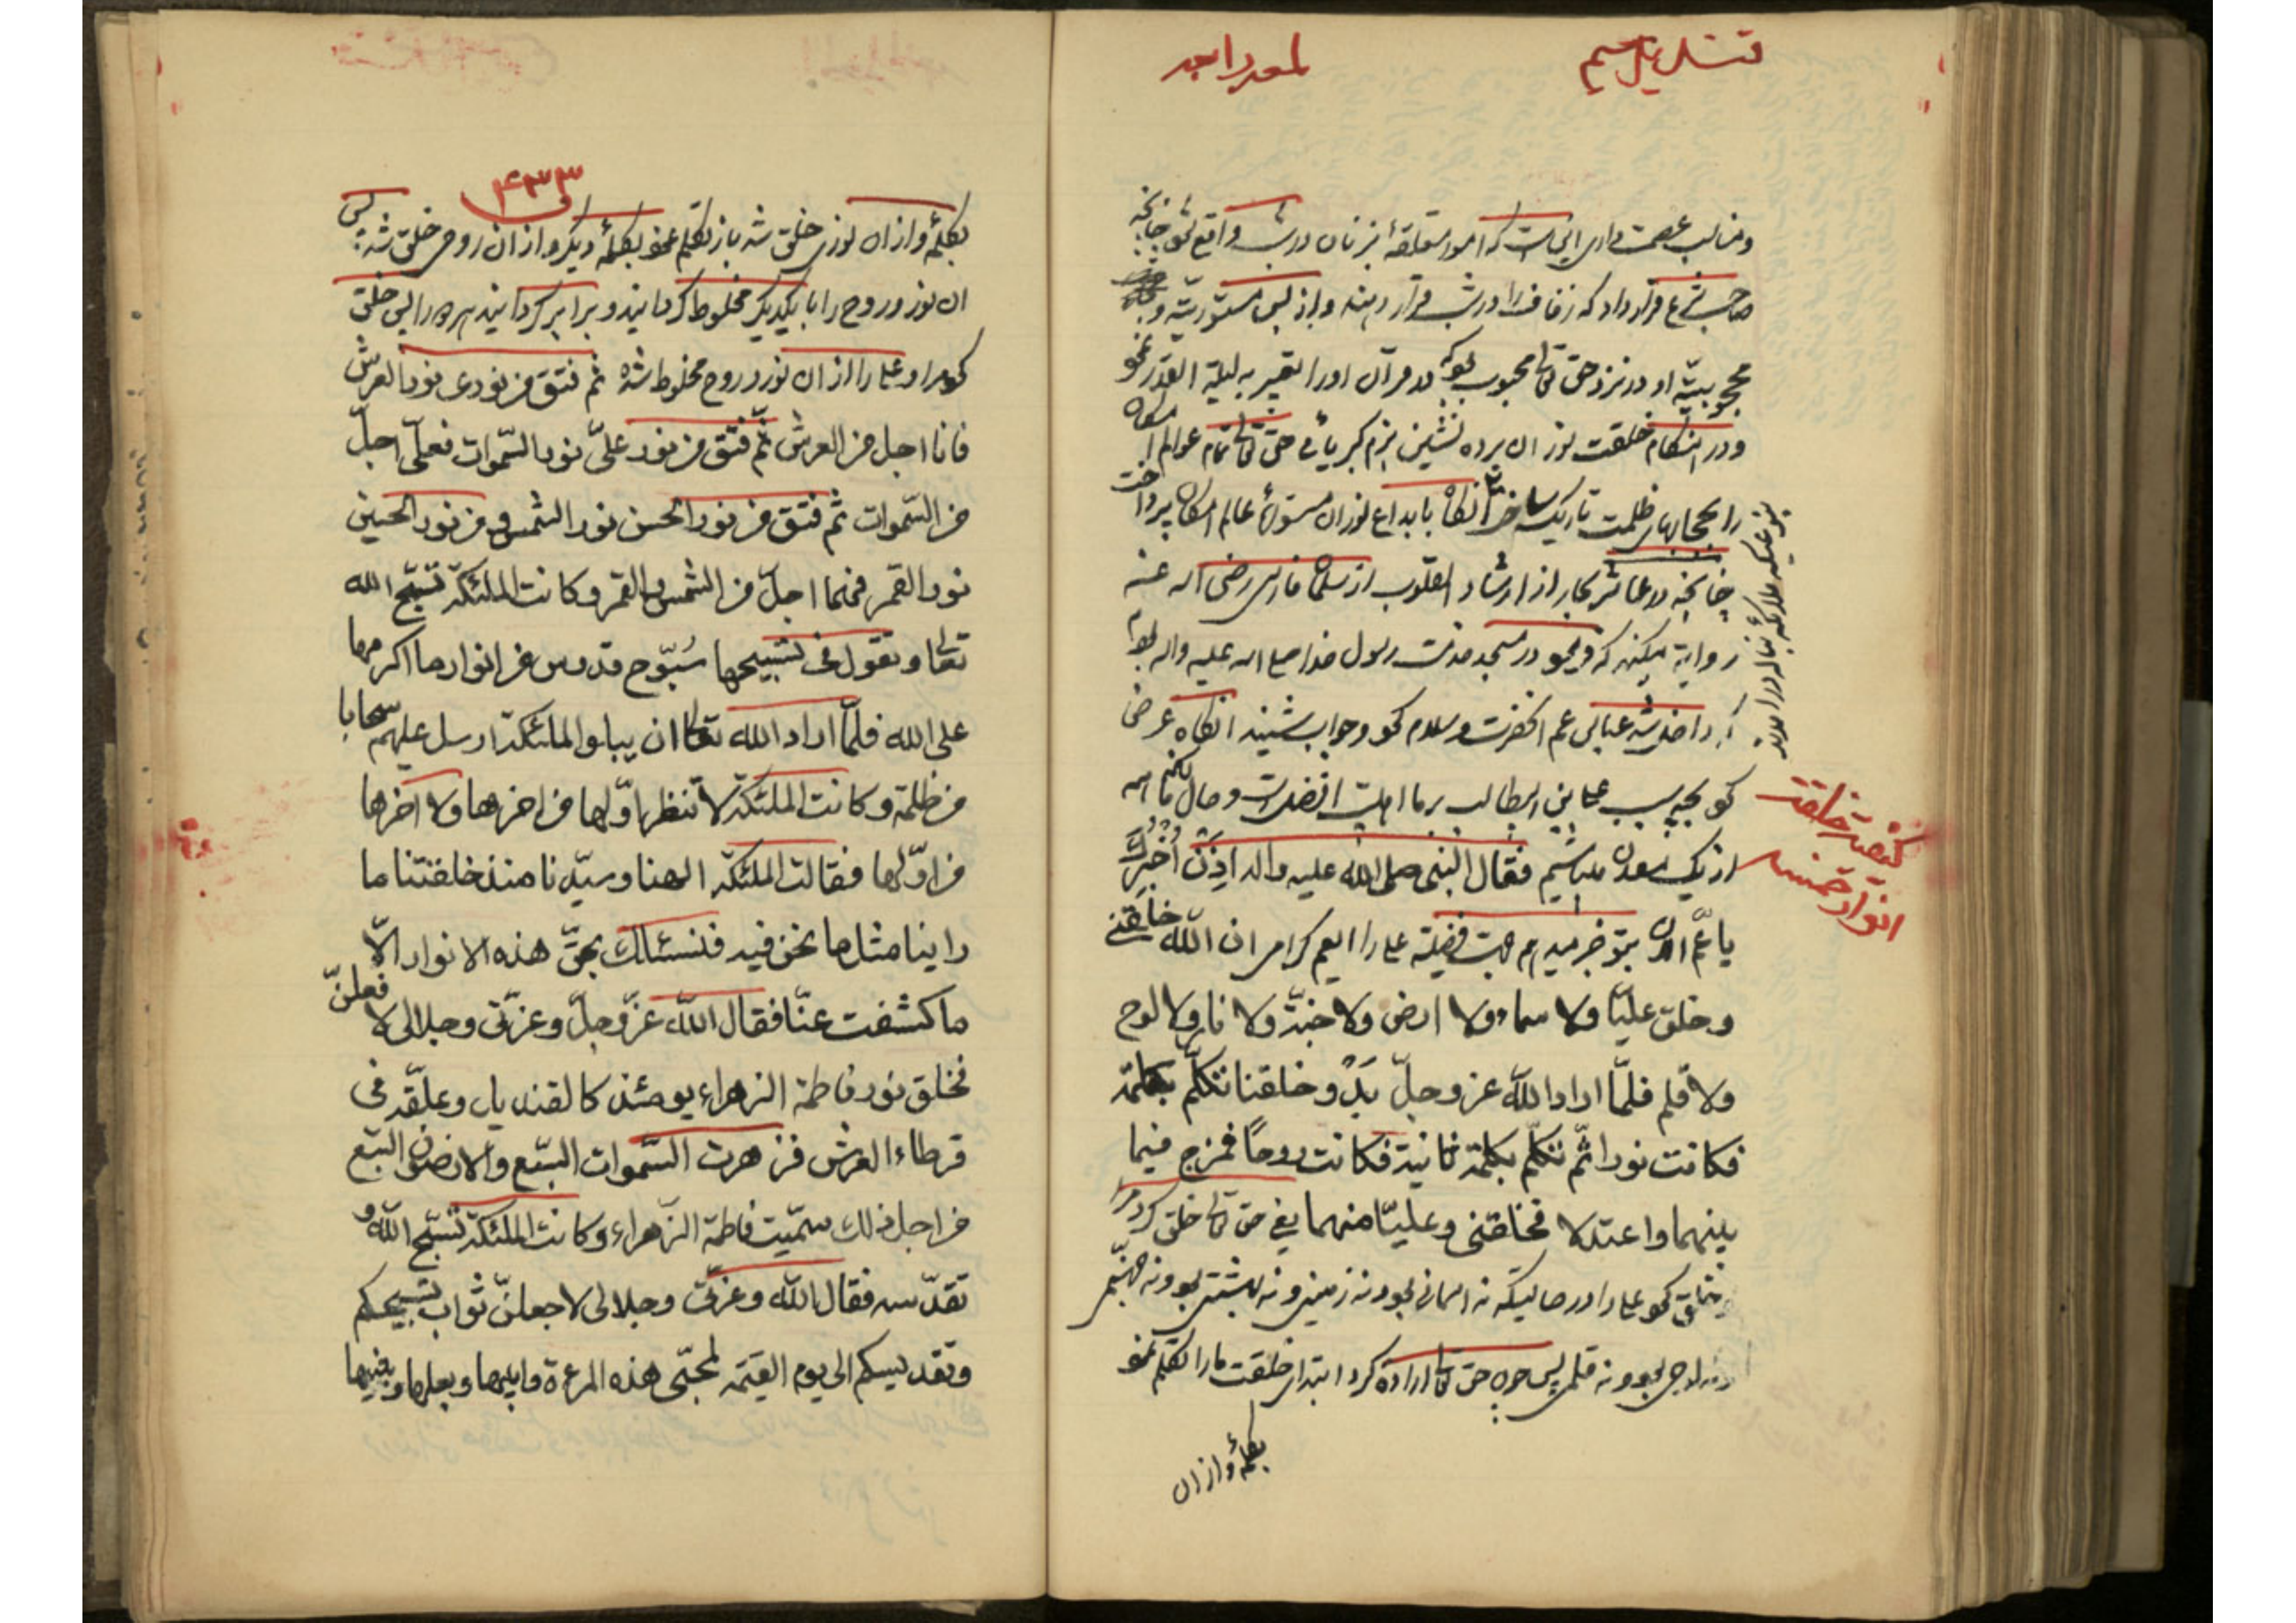 لمعه رابعه
ومناسب عصمت داری این است که امور متعلقهٔ بزنان در شب واقع شود چنانچه
صاحب شرع قرار داد که زفاف را در شب قرار دهند و از بس مستوریّة و
محجوبیّة او در نزد حق تعالی محبوب بود که در قرآن او را تعبیر به لیلة القدر نمود
ودر هنگام خلقت نور آن پرده نشین بزم کبریائی حق تعالی تمام عوالم امکان
را بحجابهای ظلمت تاریک ساخت آنگاه بابداع نور آن مستورهٔ عالم امکان پرداخت
بنوعیکه ملائکه بناله درآمدند
چنانچه در عاشر بحار از ارشاد القلوب از سلمان فارسی رضی الله عنه
روایة میکند که در مسجد خدمت رسول خدا صلی الله علیه واله بودیم
که داخل شد عباس عم آنحضرت وسلام کرد وجواب شنید آنگاه عرض
کرد بچه سبب علی بن ابیطالب بر ما اهلبیت افضل است وحال آنکه ما همه
کیفیت خلقت
انوار خمسه
از یک معدن میباشیم فقال النبی صلی الله علیه واله اذن اُخبرك
یا عمّ الان بتو خبر میدهم جهت فضیلة علی را ای عم کرامی ان الله خلقنی
وخلق علیّا ولا سماء ولا ارض ولا جنّة ولا نار ولا لوح
ولا قلم فلمّا اراد الله عز وجلّ بدو خلقنا تکلّم بکلمة
فکانت نورا ثمّ تکلّم بکلمة ثانیة فکانت روحًا فمزج فیما
بینهما واعتدلا فخلقنی وعلیّا منهما یعنی حق تعالی خلق کرد مرا
وخلق کرد علی را در حالیکه نه آسمانی بود نه زمینی و نه بهشتی بود ونه جهنّمی
ونه لوحی بود و نه قلمی پس چون حق تعالی اراده کرد ابتدای خلقت ما را تکلم نمود
بکلمهٔ واز ان
۴۳۳
بکلمهٔ واز ان نوری خلق شد باز تکلم نمود بکلمهٔ دیگر واز ان روحی خلق شد پس
ان نور وروح را با یکدیگر مخلوط کردانید و برابر کردانید هر دو را پس خلق
کرد مرا وعلی را از ان نور وروح مخلوط شده ثم فتق من نوری نور العرش
فانا اجل من العرش ثمّ فتق من نور علیّ نور السّموات فعلیّ اجلّ
من السّموات ثم فتق من نور الحسن نور الشمس ومن نور الحسین
نور القمر فهما اجلّ من الشمس والقمر وکانت الملئکة تسبّح الله
تعالی وتقول فی تسبیحها سُبّوح قدوس من انوار ما اکرمها
علی الله فلمّا اراد الله تعالی ان یبلو الملئکة ارسل علیهم سحابا
من ظلمة وکانت الملئکة لا تنظر اوّلها من اخرها ولا اخرها
من اوّلها فقالت الملئکة الهنا وسیّدنا منذ خلقتنا ما
راینا مثل ما نحن فیه فنسئلك بحقّ هذه الانوار الّا
ما کشفت عنّا فقال الله عزّ وجلّ وعزّتی وجلالی لافعلنّ
فخلق نور فاطمة الزهراء یومئذ کالقندیل وعلّقه فی
قرطاء العرش فزهرت السّموات السّبع والارضون السّبع
من اجل ذلك سمّیت فاطمة الزّهراء وکانت الملئکة تسبّح الله و
تقدّسه فقال الله وعزّتی وجلالی لاجعلنّ ثواب تسبیحکم
وتقدیسکم الی یوم القیٰمة لمحبّی هذه المرءة وابیها وبعلها وبنیها